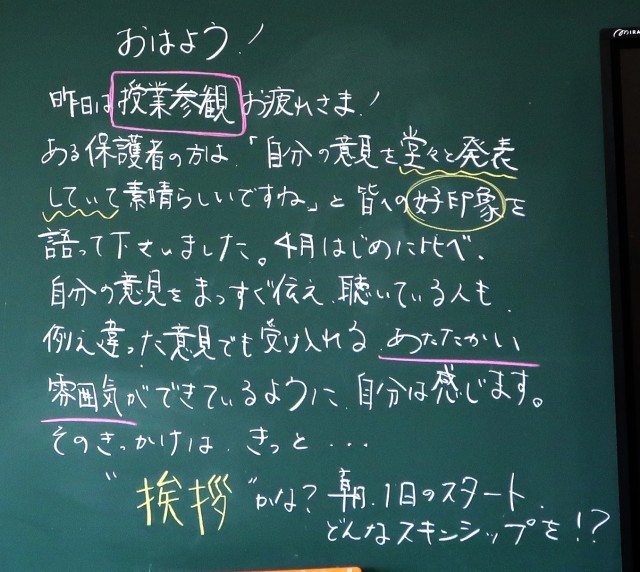 おはよう!
昨日は授業参観お疲れさま!
ある保護者の方は、「自分の意見を堂々と発表
していて素晴らしいですね」と皆への好印象を
語って下さいました。4月はじめに比べ、
自分の意見をまっすぐ伝え、聴いている人も、
例え違った意見でも受け入れる、あたたかい
雰囲気ができているように、自分は感じます。
そのきっかけは、きっと・・・
"挨拶"かな?朝、1日のスタート、
どんなスキンシップを!?